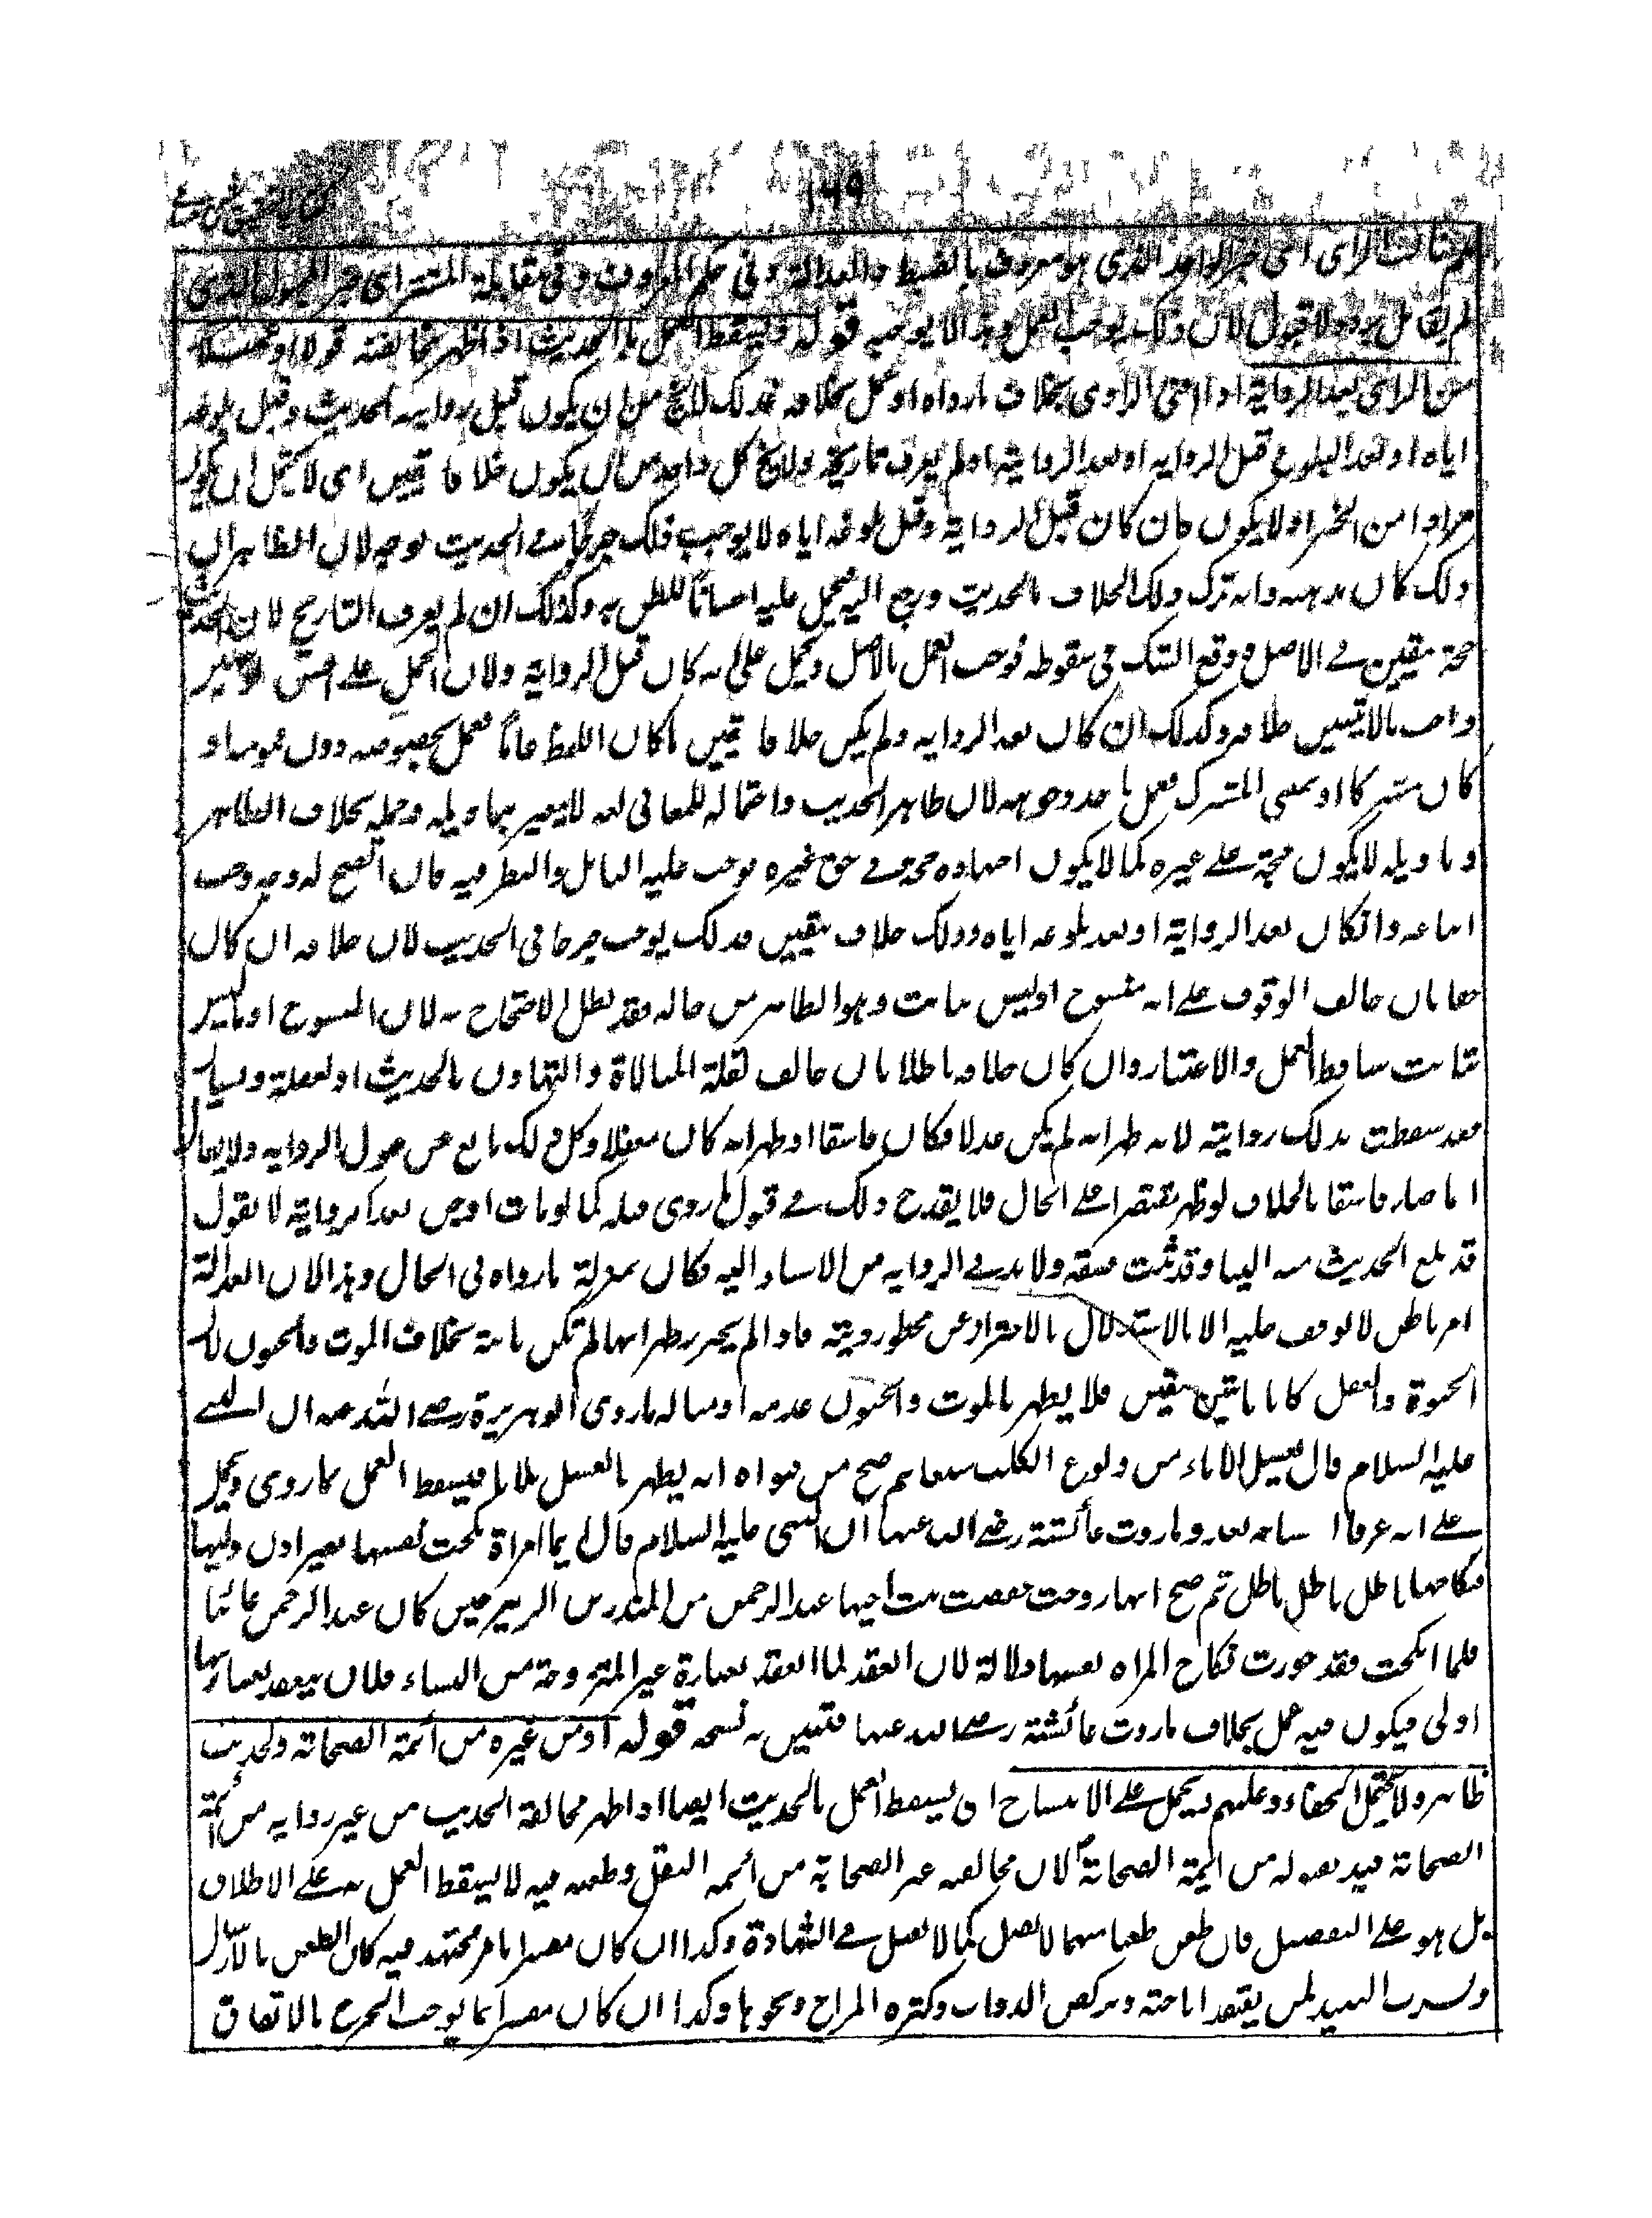 ١٤٩
خبر الواحد الذي هو معروف بالضبط والعدالة وفي حكم المعروف وفي مقابلة المستتر اى خبر المجهول الذى
لم يقابل برد ولا قبول لان ذلك يوجب العمل وهذا لا يوجبه قوله ويسقط العمل بالحديث اذا ظهر مخالفته قولا او عملا
من الراوى بعد الرواية اذا افتى الراوى بخلاف ما رواه او عمل بخلافه فذلك لا يخ من ان يكون قبل روايته الحديث وقبل بلوغه
اياه او بعد البلوغ قبل الرواية او بعد الرواية او لم يعرف تاريخه ولا يخ كل واحد من ان يكون خلافا بيقين اى لا يحتمل ان يكون
مرادا من الخبر او لا يكون فان كان قبل الرواية وقبل بلوغه اياه لا يوجب ذلك جرحا فى الحديث بوجه لان الظاهر ان
ذلك كان مذهبه وانه ترك ذلك الخلاف بالحديث ورجع اليه فيحمل عليه احسانا للظن به وكذلك ان لم يعرف التاريخ لان الحديث
حجة بيقين فى الاصل ووقع الشك فى سقوطه فوجب العمل بالاصل ويحمل على انه كان قبل الرواية ولان الحمل على احسن الوجهين
واجب ما لا يتبين خلافه وكذلك ان كان بعد الرواية ولم يكن خلافا بيقين بان كان اللفظ عاما فعمل بخصوصه دون عمومه او
كان مشتركا او بمعنى المشترك فعمل باحد وجوهه لان ظاهر الحديث واحتماله للمعانى لغة لا يتغير بتاويله وحمله بخلاف الظاهر
وتاويله لا يكون حجة على غيره كما لا يكون اجتهاده حجة فى حق غيره فوجب عليه التامل والنظر فيه فان اتضح له وجه وجب
اتباعه وان كان بعد الرواية او بعد بلوغه اياه وذلك خلاف بيقين فذلك يوجب جرحا فى الحديث لان خلافه ان كان
حقا بان خالف الوقوف على انه منسوخ او ليس بثابت وهو الظاهر من حاله فقد بطل الاحتجاج به لان المنسوخ او ما ليس
بثابت ساقط العمل والاعتبار وان كان خلافه باطلا بان خالف لقلة المبالاة والتهاون بالحديث او لغفلة ونسيان
فقد سقطت بذلك روايته لانه ظهر انه لم يكن عدلا فكان فاسقا او ظهر انه كان مغفلا وكل ذلك مانع من قبول الرواية ولا يقال
انما صار فاسقا بالخلاف لو ظهر مقتصرا على الحال فلا يقدح ذلك فى قبول ما روى قبله كما لو مات او جن بعد الرواية لانا نقول
قد بلغ الحديث منه الينا وقد ثبت فسقه ولا بد فى الرواية من الاسناد اليه فكان بمنزلة ما رواه فى الحال وهذا لان العدالة
امر باطن لا يوقف عليه الا بالاستدلال بالاحتراز عن محظور دينه فاذا لم يحترز ظهر انها لم تكن ثابتة بخلاف الموت والجنون لان
الحيوة والعقل كانا ثابتين بيقين فلا يظهر بالموت والجنون عدمه او مثاله ما روى ابو هريرة رضى الله عنه ان النبى
عليه السلام قال يغسل الاناء من ولوغ الكلب سبعا ثم صح من فتواه انه يطهر بالغسل ثلاثا فيسقط العمل بما روى ويحمل
على انه عرف انتساخه بعد وما روت عائشة رضى الله عنها ان النبى عليه السلام قال ايما امراة نكحت نفسها بغير اذن وليها
فنكاحها باطل باطل باطل ثم صح انها زوجت حفصة بنت اخيها عبد الرحمن من المنذر بن الزبير حين كان عبد الرحمن غائبا
فلما انكحت فقد جوزت نكاح المراة نفسها دلالة لان العقد لما انعقد بعبارة غير المتزوجة من النساء فلان ينعقد بعبارتها
اولى فيكون فيه عمل بخلاف ما روت عائشة رضى الله عنها فتبين به نسخه قوله او من غيره من أئمة الصحابة والحديث
ظاهر ولا يحتمل الخفاء وعليهم ويحمل على الانتساخ اى يسقط العمل بالحديث ايضا اذا ظهر مخالفة الحديث من غير راويه من أئمة
الصحابة قيد بقوله من أئمة الصحابة لان مخالفة غير الصحابة من أئمة النقل وطعنه فيه لا يسقط العمل به على الاطلاق
بل هو على التفصيل فان طعن طعنا مبهما لا يقبل كما لا يقبل فى الشهادة وكذا ان كان مفسرا بامر مجتهد فيه كان الطعن بالارسال
وشرب النبيذ لمن يعتقد اباحته وبركض الدواب وكثرة المزاح ونحوها وكذا ان كان مفسرا بما يوجب الجرح بالاتفاق